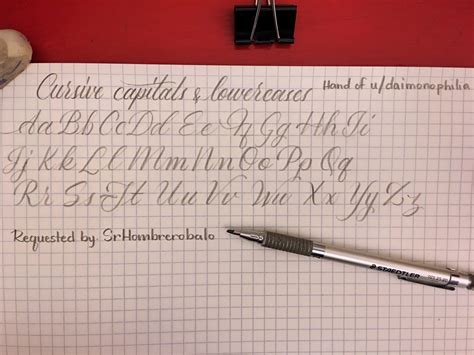 Cursive capitals & lowercases
Hand of u/daimonophilia
Aa Bb Cc Dd Ee Ff Gg Hh Ii
Jj Kk Ll Mm Nn Oo Pp Qq
Rr Ss Tt Uu Vv Ww Xx Yy Zz
Requested by: SrHombrerobalo
STAEDTLER